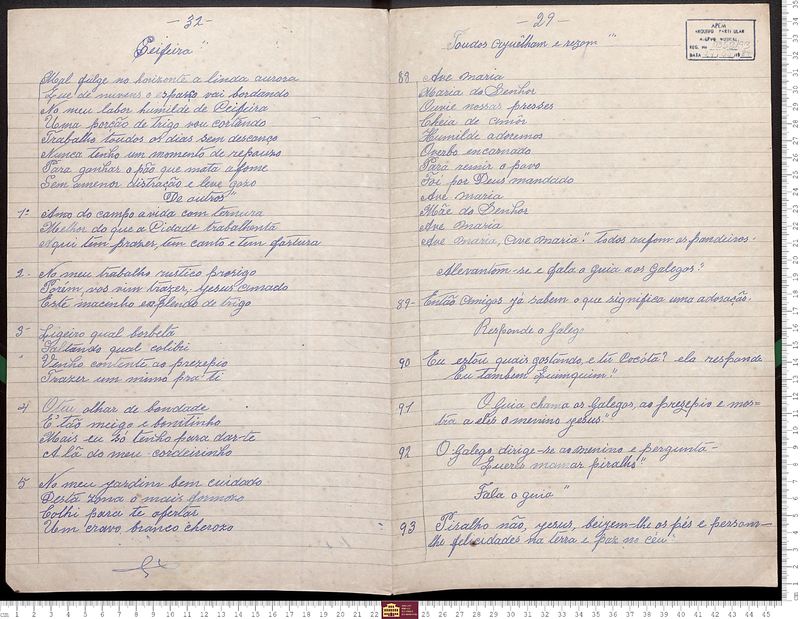 - 32 -
Ceifeira"
Mal fulge no horizonte a linda aurora
Que de nuvens o espaço vai bordando
No meu labor humilde de Ceifeira
Uma porção de trigo vou cortando
Trabalho toudos os dias sem descanço
Nunca tenho um momento de repouso
Para ganhar o pão que mata a fome
Sem amenor distração e leve gozo
De outros"
1º Amo do campo a vida com ternura
Melhor do que a Cidade trabalhenta
Aqui tem prazer, tem canto e tem fartura
2- No meu trabalho rustico prosigo
Porém vos vim trazer, Jesus amado
Este macinho explendo de trigo
3- Ligeiro qual borbeta
Saltando qual colibri
Venho contente ao prezepio
Trazer um mimo pra ti
4 O teu olhar de bondade
E' tão meigo e bonitinho
Mais eu só tenho para dar-te
A lã do meu cordeirinho
5 No meu jardim bem cuidado
Desta zona o mais formozo
Colhi para te ofertar
Um cravo branco cherozo
- 29 -
Toudos ajuelham e rezam"
88 Ave Maria
Maria do Senhor
Ouvie nossas presses
Cheia de amôr
Humilde adoremos
Overbo encarnado
Para remir o povo
Foi por Deus mandado
Ave Maria
Mãe do Senhor
Ave Maria
Ave Maria, Ave Maria". Todos rufam os pandeiros.
Alevantam-se e fala o Guia aos Galegos:"
89- Então Amigos já sabem o que significa uma adoração.
Responde o Galego
90 Eu estou quais gostando, e tu Cocóta? ela responde
Eu tambem Quinquim!"
91 O Guia chama os Galegos, ao prezepio e mos=
tra a eles o menino Jesus"
92 O Galego dirige-se ao menino e pergunta-
Queres mamar piralho"
Fala o guia "
93 Piralho não, Jesus, beijem-lhe os pés e
lhe felicidades na terra e paz no céu"
APEM
ARQUIVO PARTICULAR
ACERVO MUSICAL
REG. No
DATA